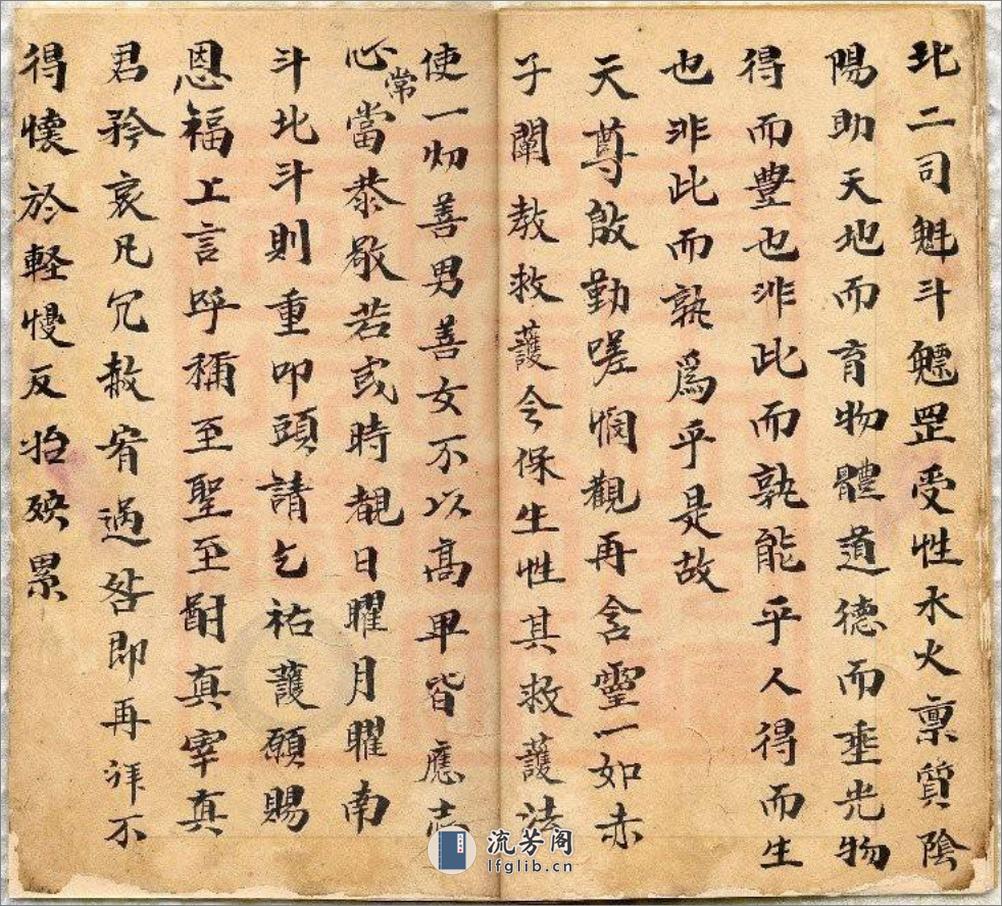 北二司魁斗魒罡受性水火禀質陰
陽助天地而育物體道德而垂光物
得而豊也非此而孰能乎人得而生
也非此而孰為乎是故
天尊啟勤嗟憫觀再含靈一如赤
子闡教救護令保生性其救護法
使一切善男善女不以高甲皆應志
心常當恭敬若或時覩日曜月曜南
斗北斗則重叩頭請乞祐護願賜
恩福上言呼稱至聖至尉真宰真
君矜哀凡冗赦宥過咎即再拜不
得懷於軽慢反招殃累
流芳阁
lfglib.cn